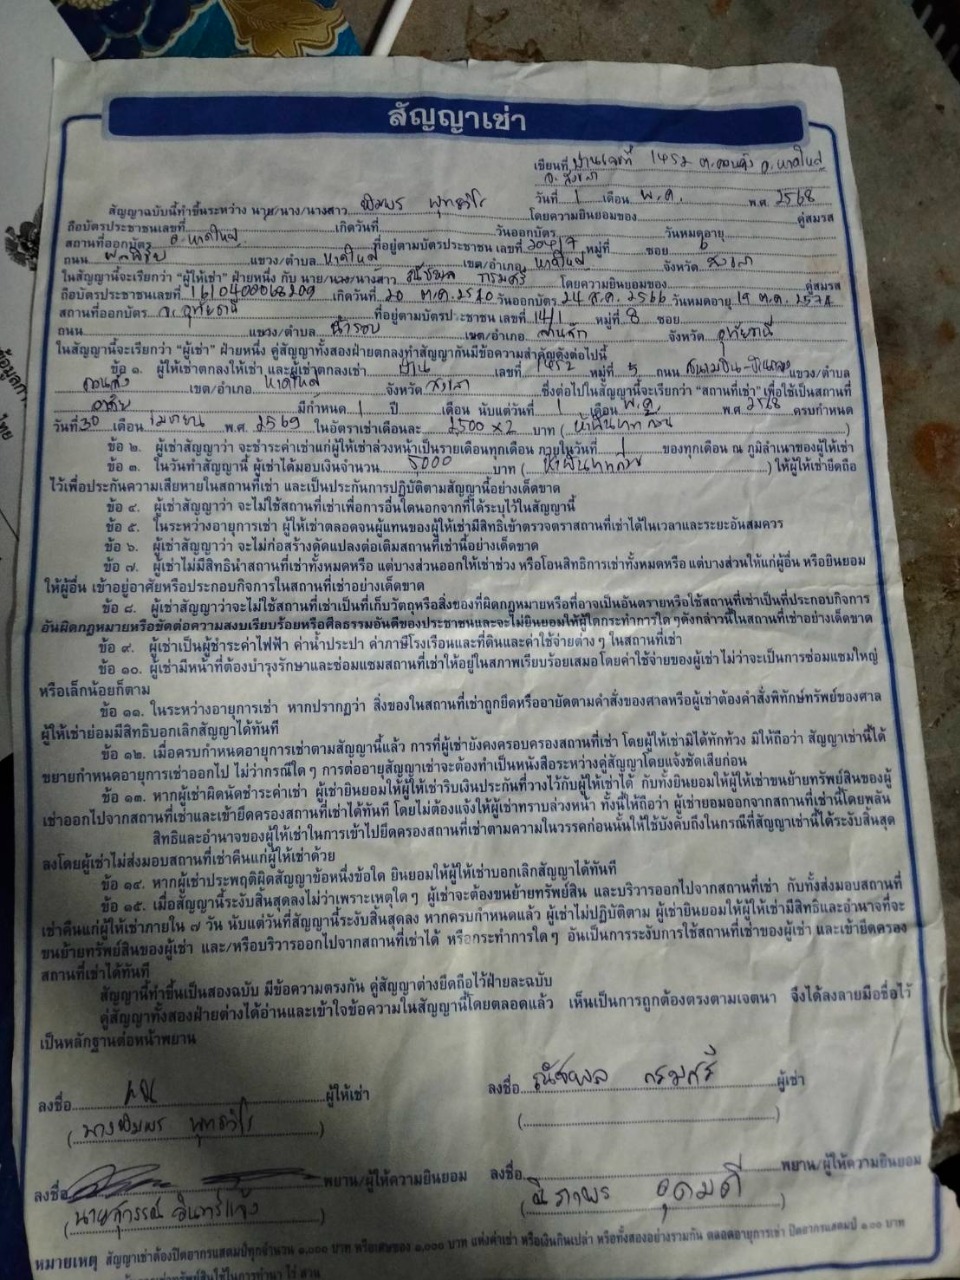 สัญญาเช่า
เขียนที่ บ้านเลขที่ 1452 ต.ควนลัง อ.หาดใหญ่
จ.สงขลา
วันที่ 1 เดือน พ.ค. พ.ศ. 2568
สัญญาฉบับนี้ทำขึ้นระหว่าง นาย/นาง/นางสาว พิมพร โดยความยินยอมของ คู่สมรส
ถือบัตรประชาชนเลขที่ เกิดวันที่ วันออกบัตร วันหมดอายุ
สถานที่ออกบัตร อ.หาดใหญ่ ที่อยู่ตามบัตรประชาชน เลขที่ หมู่ที่ ซอย 6
ถนน แขวง/ตำบล หาดใหญ่ เขต/อำเภอ หาดใหญ่ จังหวัด สงขลา
ในสัญญานี้จะเรียกว่า "ผู้ให้เช่า" ฝ่ายหนึ่ง กับ นาย/นาง/นางสาว ณัชพล กรมศรี โดยความยินยอมของ คู่สมรส
ถือบัตรประชาชนเลขที่ เกิดวันที่ 20 ต.ค. 2540 วันออกบัตร 24 ส.ค. 2566 วันหมดอายุ 19 ต.ค. 2574
สถานที่ออกบัตร จ.อุทัยธานี ที่อยู่ตามบัตรประชาชน เลขที่ 14/1 หมู่ที่ 8 ซอย
ถนน แขวง/ตำบล น้ำรอบ เขต/อำเภอ ลานสัก จังหวัด อุทัยธานี
ในสัญญานี้จะเรียกว่า "ผู้เช่า" ฝ่ายหนึ่ง คู่สัญญาทั้งสองฝ่ายตกลงทำสัญญากันมีข้อความสำคัญดังต่อไปนี้
ข้อ ๑. ผู้ให้เช่าตกลงให้เช่า และผู้เช่าตกลงเช่า บ้าน เลขที่ 1452 หมู่ที่ 5 ถนน แขวง/ตำบล
ควนลัง เขต/อำเภอ หาดใหญ่ จังหวัด สงขลา ซึ่งต่อไปในสัญญานี้จะเรียกว่า "สถานที่เช่า" เพื่อใช้เป็นสถานที่
มีกำหนด 1 ปี เดือน นับแต่วันที่ 1 เดือน พ.ค พ.ศ 2568 ครบกำหนด
วันที่ 30 เดือน เมษายน พ.ศ. 2569 ในอัตราเช่าเดือนละ 2500 x 2 บาท (ห้าพันบาทถ้วน)
ข้อ ๒. ผู้เช่าสัญญาว่า จะชำระค่าเช่าแก่ผู้ให้เช่าล่วงหน้าเป็นรายเดือนทุกเดือน ภายในวันที่ 1 ของทุกเดือน ณ ภูมิลำเนาของผู้ให้เช่า
ข้อ ๓. ในวันทำสัญญานี้ ผู้เช่าได้มอบเงินจำนวน 5000 บาท (ห้าพันบาทถ้วน) ให้ผู้ให้เช่ายึดถือ
ไว้เพื่อประกันความเสียหายในสถานที่เช่า และเป็นประกันการปฏิบัติตามสัญญานี้อย่างเด็ดขาด
ข้อ ๔. ผู้เช่าสัญญาว่า จะไม่ใช้สถานที่เช่าเพื่อการอื่นใดนอกจากที่ได้ระบุไว้ในสัญญานี้
ข้อ ๕. ในระหว่างอายุการเช่า ผู้ให้เช่าตลอดจนผู้แทนของผู้ให้เช่ามีสิทธิเข้าตรวจตราสถานที่เช่าได้ในเวลาและระยะอันสมควร
ข้อ ๖. ผู้เช่าสัญญาว่า จะไม่ก่อสร้างดัดแปลงต่อเติมสถานที่เช่านี้อย่างเด็ดขาด
ข้อ ๗. ผู้เช่าไม่มีสิทธินำสถานที่เช่าทั้งหมดหรือ แต่บางส่วนออกให้เช่าช่วง หรือโอนสิทธิการเช่าทั้งหมดหรือ แต่บางส่วนให้แก่ผู้อื่น หรือยินยอม
ให้ผู้อื่น เข้าอยู่อาศัยหรือประกอบกิจการในสถานที่เช่าอย่างเด็ดขาด
ข้อ ๘. ผู้เช่าสัญญาว่าจะไม่ใช้สถานที่เช่าเป็นที่เก็บวัตถุหรือสิ่งของที่ผิดกฎหมายหรือที่อาจเป็นอันตรายหรือใช้สถานที่เช่าเป็นที่ประกอบกิจการ
อันผิดกฎหมายหรือขัดต่อความสงบเรียบร้อยหรือศีลธรรมอันดีของประชาชนและจะไม่ยินยอมให้ผู้ใดกระทำการใด ๆดังกล่าวนี้ในสถานที่เช่าอย่างเด็ดขาด
ข้อ ๙. ผู้เช่าเป็นผู้ชำระค่าไฟฟ้า ค่าน้ำประปา ค่าภาษีโรงเรือนและที่ดินและค่าใช้จ่ายต่าง ๆ ในสถานที่เช่า
ข้อ ๑๐. ผู้เช่ามีหน้าที่ต้องบำรุงรักษาและซ่อมแซมสถานที่เช่าให้อยู่ในสภาพเรียบร้อยเสมอโดยค่าใช้จ่ายของผู้เช่า ไม่ว่าจะเป็นการซ่อมแซมใหญ่
หรือเล็กน้อยก็ตาม
ข้อ ๑๑. ในระหว่างอายุการเช่า หากปรากฏว่า สิ่งของในสถานที่เช่าถูกยึดหรืออายัดตามคำสั่งของศาลหรือผู้เช่าต้องคำสั่งพิทักษ์ทรัพย์ของศาล
ผู้ให้เช่าย่อมมีสิทธิบอกเลิกสัญญาได้ทันที
ข้อ ๑๒. เมื่อครบกำหนดอายุการเช่าตามสัญญานี้แล้ว การที่ผู้เช่ายังคงครอบครองสถานที่เช่า โดยผู้ให้เช่ามิได้ทักท้วง มิให้ถือว่า สัญญาเช่านี้ได้
ขยายกำหนดอายุการเช่าออกไป ไม่ว่ากรณีใด ๆ การต่ออายุสัญญาเช่าจะต้องทำเป็นหนังสือระหว่างคู่สัญญาโดยแจ้งชัดเสียก่อน
ข้อ ๑๓. หากผู้เช่าผิดนัดชำระค่าเช่า ผู้เช่ายินยอมให้ผู้ให้เช่าริบเงินประกันที่วางไว้กับผู้ให้เช่าได้ กับทั้งยินยอมให้ผู้ให้เช่าขนย้ายทรัพย์สินของผู้
เช่าออกไปจากสถานที่เช่าและเข้ายึดครองสถานที่เช่าได้ทันที โดยไม่ต้องแจ้งให้ผู้เช่าทราบล่วงหน้า ทั้งนี้ให้ถือว่า ผู้เช่ายอมออกจากสถานที่เช่านี้โดยพลัน
สิทธิและอำนาจของผู้ให้เช่าในการเข้าไปยึดครองสถานที่เช่าตามความในวรรคก่อนนั้นให้ใช้บังคับถึงในกรณีที่สัญญาเช่านี้ได้ระงับสิ้นสุด
ลงโดยผู้เช่าไม่ส่งมอบสถานที่เช่าคืนแก่ผู้ให้เช่าด้วย
ข้อ ๑๔. หากผู้เช่าประพฤติผิดสัญญาข้อหนึ่งข้อใด ยินยอมให้ผู้ให้เช่าบอกเลิกสัญญาได้ทันที
ข้อ ๑๕. เมื่อสัญญานี้ระงับสิ้นสุดลงไม่ว่าเพราะเหตุใด ๆ ผู้เช่าจะต้องขนย้ายทรัพย์สิน และบริวารออกไปจากสถานที่เช่า กับทั้งส่งมอบสถานที่
เช่าคืนแก่ผู้ให้เช่าภายใน ๗ วัน นับแต่วันที่สัญญานี้ระงับสิ้นสุดลง หากครบกำหนดแล้ว ผู้เช่าไม่ปฏิบัติตาม ผู้เช่ายินยอมให้ผู้ให้เช่ามีสิทธิและอำนาจที่จะ
ขนย้ายทรัพย์สินของผู้เช่า และ/หรือบริวารออกไปจากสถานที่เช่าได้ หรือกระทำการใด ๆ อันเป็นการระงับการใช้สถานที่เช่าของผู้เช่า และเข้ายึดครอง
สถานที่เช่าได้ทันที
สัญญานี้ทำขึ้นเป็นสองฉบับ มีข้อความตรงกัน คู่สัญญาต่างยึดถือไว้ฝ่ายละฉบับ
คู่สัญญาทั้งสองฝ่ายต่างได้อ่านและเข้าใจข้อความในสัญญานี้โดยตลอดแล้ว เห็นเป็นการถูกต้องตรงตามเจตนา จึงได้ลงลายมือชื่อไว้
เป็นหลักฐานต่อหน้าพยาน
ลงชื่อ ผู้ให้เช่า ลงชื่อ ณัชพล กรมศรี ผู้เช่า
(นางพิมพร )
ลงชื่อ พยาน/ผู้ให้ความยินยอม ลงชื่อ พยาน/ผู้ให้ความยินยอม
(นายสุวรรณ อินทร์แจ้ง) ณิภาพร อุดมดี
หมายเหตุ สัญญาเช่าต้องปิดอากรแสตมป์ทุกจำนวน ๑,๐๐๐ บาท หรือเศษของ ๑,๐๐๐ บาท แห่งค่าเช่า หรือเงินกินเปล่า หรือทั้งสองอย่างรวมกัน ตลอดอายุการเช่า ปิดอากรแสตมป์ ๑.๐๐ บาท